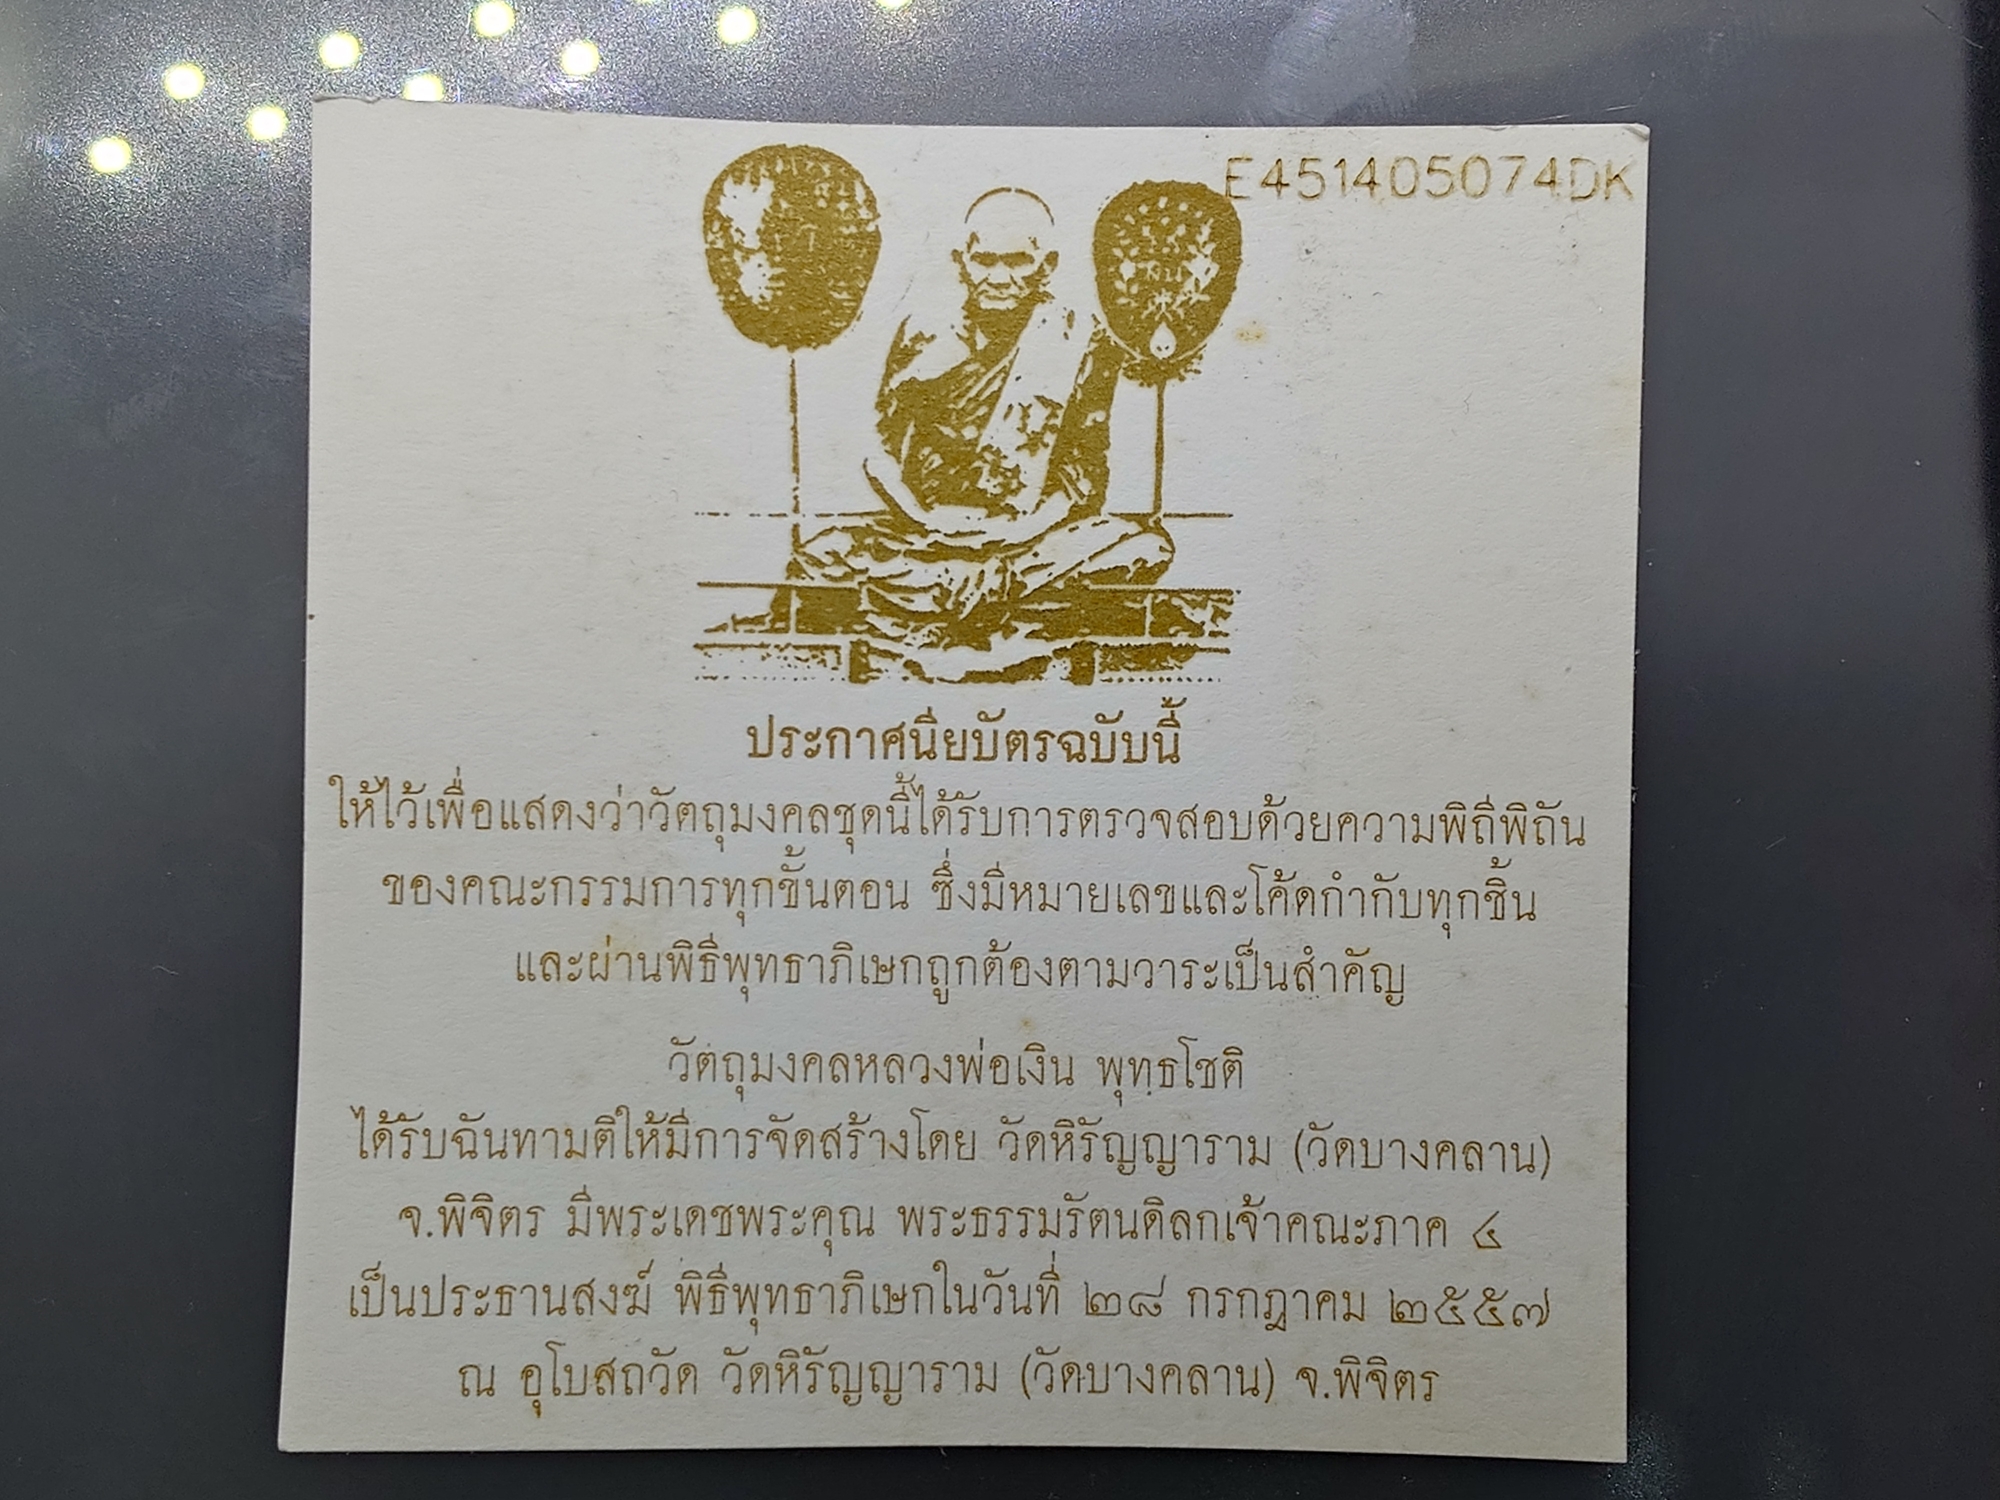 E451405074DK
ประกาศนียบัตรฉบับนี้
ให้ไว้เพื่อแสดงว่าวัตถุมงคลชุดนี้ได้รับการตรวจสอบด้วยความพิถีพิถัน
ของคณะกรรมการทุกขั้นตอน ซึ่งมีหมายเลขและโค้ดกำกับทุกชิ้น
และผ่านพิธีพุทธาภิเษกถูกต้องตามวาระเป็นสำคัญ
วัตถุมงคลหลวงพ่อเงิน พุทธโชติ
ได้รับฉันทามติให้มีการจัดสร้างโดย วัดหิรัญญาราม (วัดบางคลาน)
จ.พิจิตร มีพระเดชพระคุณ พระธรรมรัตนดิลกเจ้าคณะภาค ๔
เป็นประธานสงฆ์ พิธีพุทธาภิเษกในวันที่ ๒๘ กรกฎาคม ๒๕๕๗
ณ อุโบสถวัด วัดหิรัญญาราม (วัดบางคลาน) จ.พิจิตร